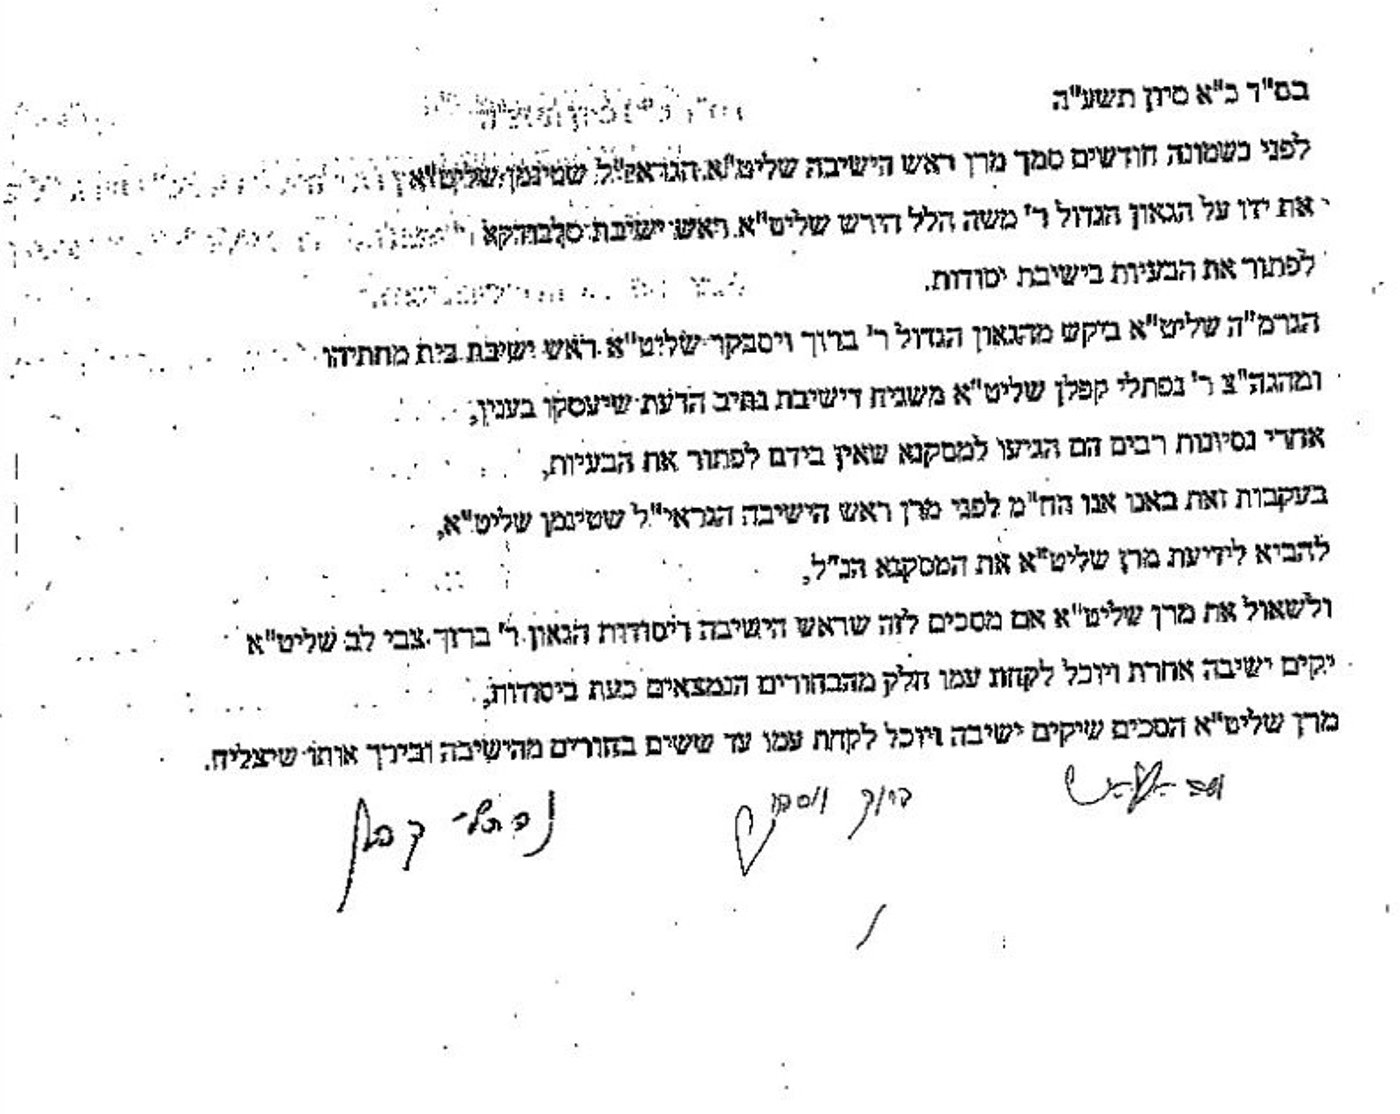 בס"ד כ"א סיון תשע"ה
לפני כשמונה חודשים סמך מרן ראש הישיבה שליט"א הגראי"ל שטינמן שליט"א
את ידו על הגאון הגדול ר' משה הלל הירש שליט"א ראש ישיבת סלבודקא
לפתור את הבעיות בישיבת יסודות.
הגרמ"ה שליט"א ביקש מהגאון הגדול ר' ברוך ויסבקר שליט"א ראש ישיבת בית מתתיהו
ומהגה"צ ר' נפתלי קפלן שליט"א משגיח דישיבת נתיב הדעת שיעסקו בענין,
אחרי נסיונות רבים הם הגיעו למסקנא שאין בידם לפתור את הבעיות,
בעקבות זאת באנו אנו הח"מ לפני מרן ראש הישיבה הגראי"ל שטינמן שליט"א,
להביא לידיעת מרן שליט"א את המסקנא הנ"ל,
ולשאול את מרן שליט"א אם מסכים לזה שראש הישיבה דיסודות הגאון ר' ברוך צבי לב שליט"א
יקים ישיבה אחרת ויוכל לקחת עמו חלק מהבחורים הנמצאים כעת ביסודות,
מרן שליט"א הסכים שיקים ישיבה ויוכל לקחת עמו עד ששים בחורים מהישיבה ובירך אותו שיצליח.
ברוך ויסבקר נפתלי קפלן